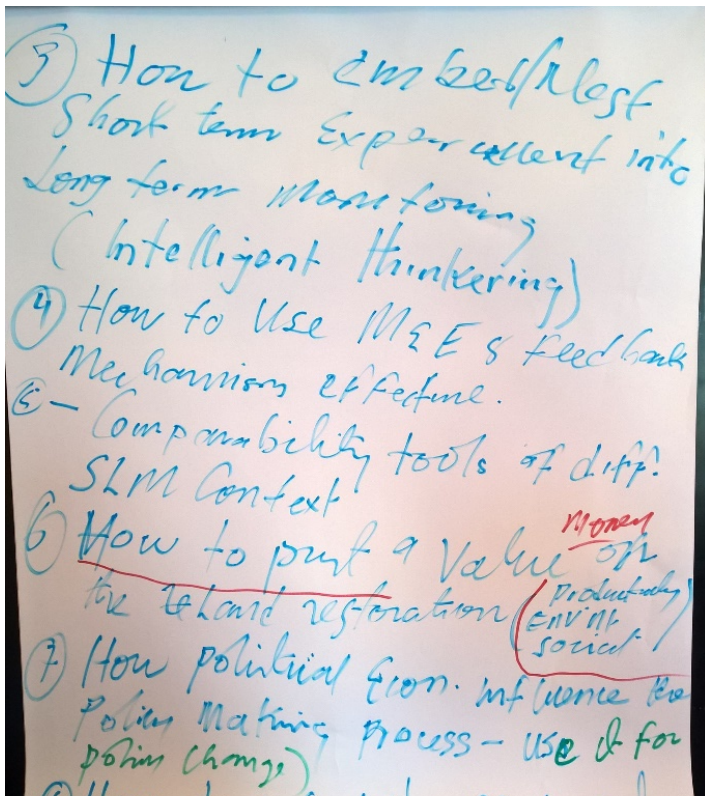 ③ How to embed/Nest
Short term Experiment into
Long term monitoring
(Intelligent thinkering)
④ How to Use M&E & feedback
Mechanism effective.
⑤ - Comparability tools of diff.
SLM Context
Money
6 How to put a Value on
the land restoration (Productivity
Envi'nt
social)
⑦ How political Econ. influence the
Policy Making Process - use it for
policy change)